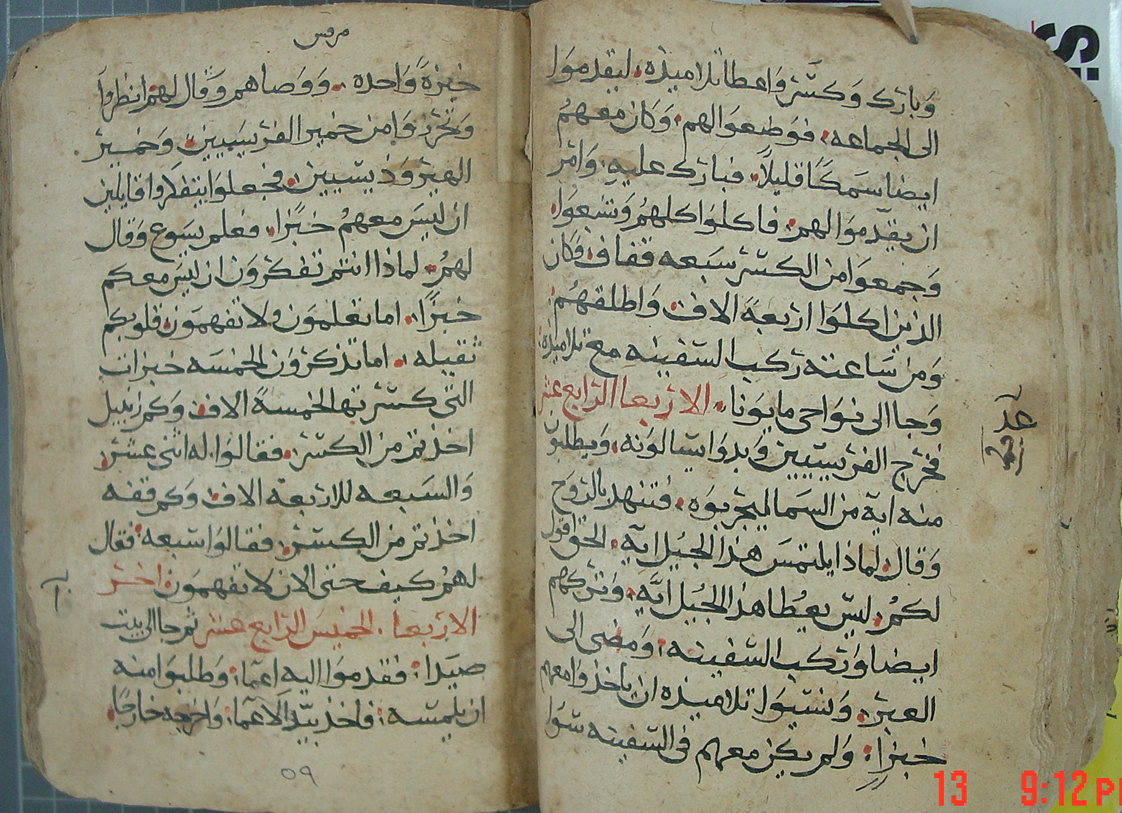 وبارك وكسر واعطا تلاميذه ليقدموا
الى الجماعه فوضعوا لهم وكان معهم
ايضا سمكًا قليلاً فبارك عليه وامر
ان يقدموا لهم فاكلوا كلهم وشبعوا
وجمعوا من الكسر سبعه قفاف وكان
الذين اكلوا اربعة الاف واطلقهم
ومن ساعته ركب السفينه مع تلاميذه
وجا الى نواحي مايونا الاربعا الرابع عشر
فخرج الفريسيين وبدوا يسالونه ويطلبون
منه اية من السما ليجربوه فتنهد بالروح
وقال لماذا يلتمس هذا الجيل اية الحق اقول
لكم ليس يعطا هذا الجيل اية وتركهم
ايضا وركب السفينه ومضى الى
العبر ونسيوا تلاميذه ان ياخذوا معهم
خبزا ولم يكن معهم في السفينه سوا
مرقس
خبزةً واحده ووصاهم وقال لهم انظروا
وتحرزوا من خمير الفريسيين وخمير
الهيروذيسيين فجعلوا يتفكروا قايلين
ان ليس معهم خبزا فعلم يسوع وقال
لهم لماذا انتم تفكرون ان ليس معكم
خبزًا اما تعلمون ولا تفهمون قلوبكم
ثقيله اما تذكرون الخمسه خبزات
التي كسرتها لخمسة الاف وكم زنبيل
اخذتم من الكسر فقالوا له اثني عشر
والسبعه للاربعة الاف وكم قفه
اخذتم من الكسر فقالوا سبعه فقال
لهم كيف حتى الان لا تفهمون اخر
الاربعا الخميس الرابع عشر ثم جا الى بيت
صيدا فقدموا اليه اعما وطلبوا منه
ان يلمسه فاخذ بيد الاعما واخرجه خارجًا
٥٩
13 9:12 P